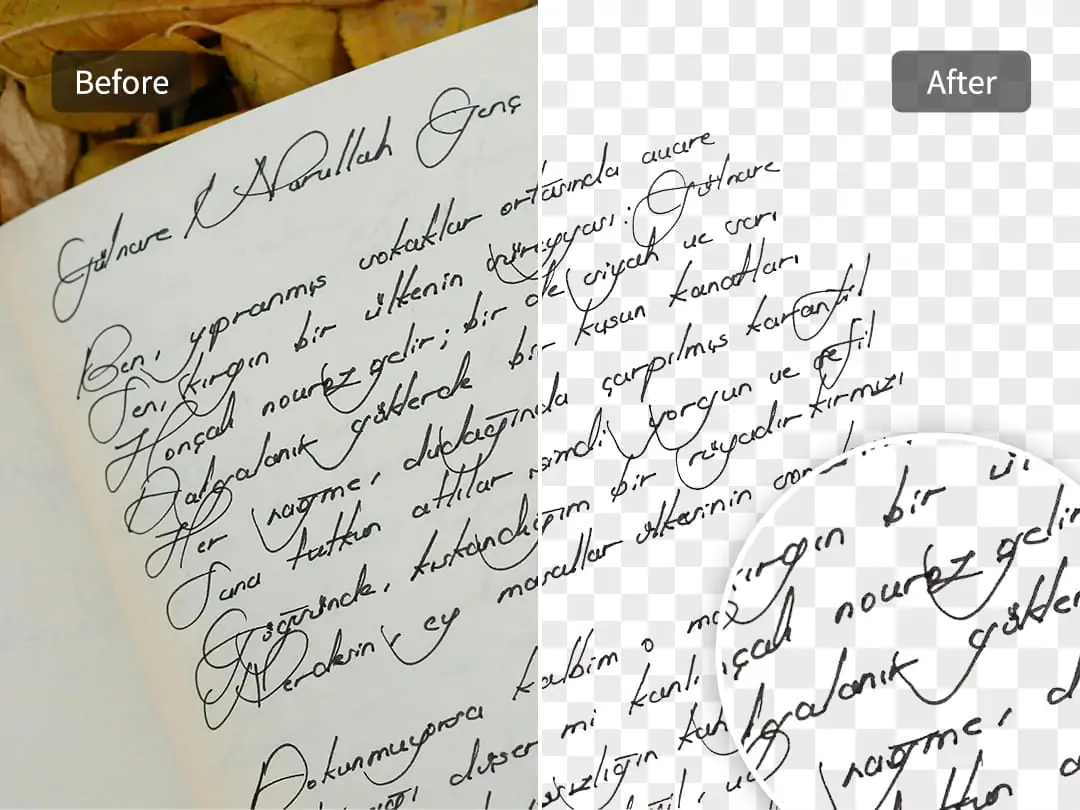 Before
After
Gülnare & Nurullah Genç
Ben, yıpranmış sokaklar ortasında avare
Sen, kırgın bir ülkenin süreyyası: Gülnare
Hançalı nevruz gelir; bir de siyah ve sarı
Dalgalanık göklerde bir kuşun kanatları
Her nağme, dudağında çarpılmış karanfil
Sana tutkun atlılar şimdi yorgun ve sefil
Göğsünde, kıskandığım bir rüyadır kırmızı
Nerdesin ey masallar ülkesinin
Dokunmuyorsa kalbim o
düşer mi kanlı
ırgın bir ül
nçalı nevruz gelir
lgalanık gökler
nağme, d